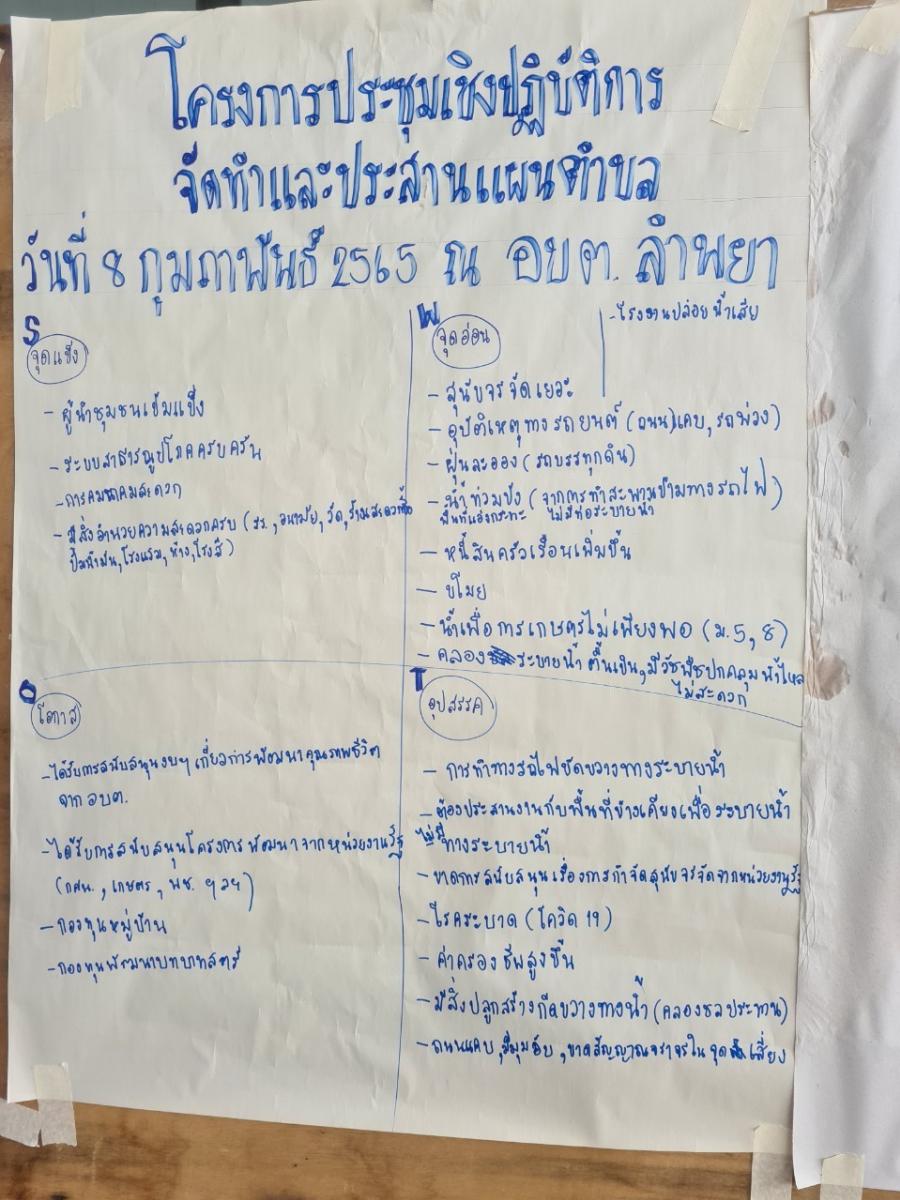 โครงการประชุมเชิงปฏิบัติการ
จัดทำและประสานแผนตำบล
วันที่ 8 กุมภาพันธ์ 2565 ณ อบต. ลำพยา
S
จุดแข็ง
- ผู้นำชุมชนเข้มแข็ง
- ระบบสาธารณูปโภคครบครัน
- การคมนาคมสะดวก
- มีสิ่งอำนวยความสะดวกครบ (รร., อนามัย, วัด, ร้านสะดวกซื้อ
ปั๊มน้ำมัน, โรงแรม, ห้าง, โรงสี)
W
จุดอ่อน
- โรงงานปล่อยน้ำเสีย
- สุนัขจรจัดเยอะ
- อุบัติเหตุทางรถยนต์ (ถนนแคบ, รถพ่วง)
- ฝุ่นละออง (รถบรรทุกดิน)
- น้ำท่วมขัง (จากการทำสะพานข้ามทางรถไฟ)
พื้นที่แอ่งกระทะ ไม่มีท่อระบายน้ำ
- หนี้สินครัวเรือนเพิ่มขึ้น
- ขโมย
- น้ำเพื่อการเกษตรไม่เพียงพอ (ม.5, 8)
- คลองระบายน้ำตื้นเขิน, มีวัชพืชปกคลุมน้ำไหล
ไม่สะดวก
O
โอกาส
- ได้รับการสนับสนุนงบฯ เกี่ยวการพัฒนาคุณภาพชีวิต
จาก อบต.
- ได้รับการสนับสนุนโครงการพัฒนาจากหน่วยงานรัฐ
(กศน., เกษตร, พช. ฯลฯ)
- กองทุนหมู่บ้าน
- กองทุนพัฒนาบทบาทสตรี
T
อุปสรรค
- การทำทางรถไฟขัดขวางทางระบายน้ำ
- ต้องประสานงานกับพื้นที่ข้างเคียงเพื่อระบายน้ำ
ไม่มีทางระบายน้ำ
- ขาดการสนับสนุนเรื่องการกำจัดสุนัขจรจัดจากหน่วยงานรัฐ
- โรคระบาด (โควิด 19)
- ค่าครองชีพสูงขึ้น
- มีสิ่งปลูกสร้างกีดขวางทางน้ำ (คลองชลประทาน)
- ถนนแคบ, มีมุมอับ, ขาดสัญญาณจราจรในจุดเสี่ยง